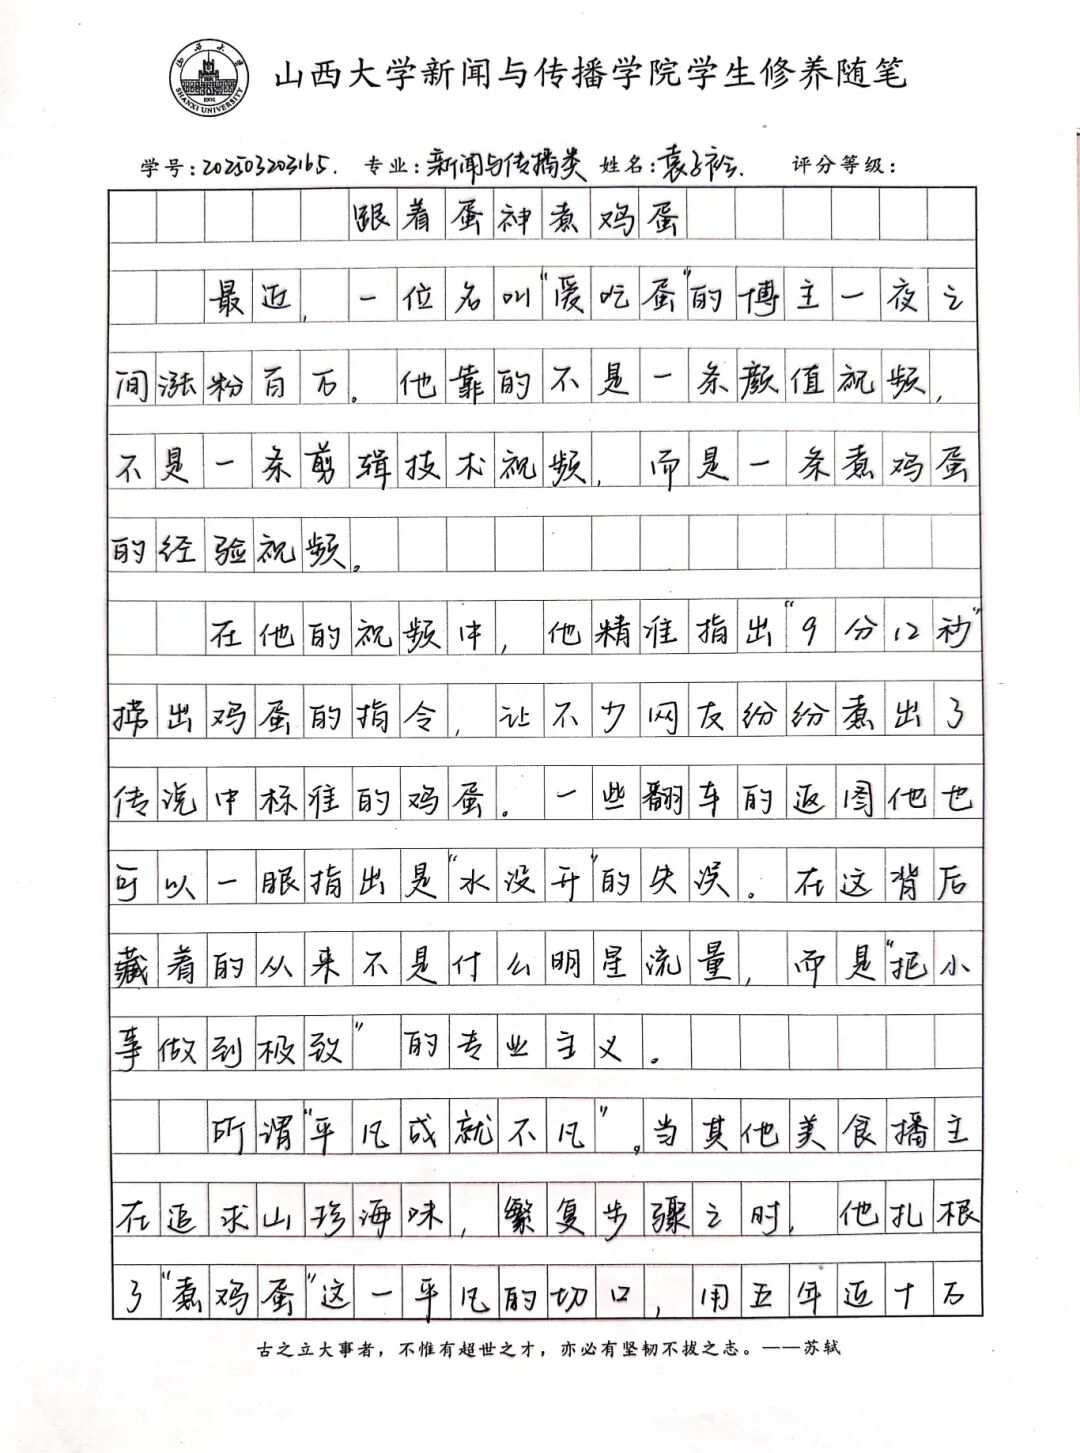 山西大学新闻与传播学院学生修养随笔
学号:202503203165. 专业:新闻与传播类 姓名:袁子衿. 评分等级:
跟着蛋神煮鸡蛋
最近,一位名叫“爱吃蛋”的博主一夜之
间涨粉百万。他靠的不是一条颜值视频,
不是一条剪辑技术视频,而是一条煮鸡蛋
的经验视频。
在他的视频中,他精准指出“9分12秒”
捞出鸡蛋的指令,让不少网友纷纷煮出了
传说中标准的鸡蛋。一些翻车的返图他也
可以一眼指出是“水没开”的失误。在这背后
藏着的从来不是什么明星流量,而是“把小
事做到极致”的专业主义。
所谓“平凡成就不凡”。当其他美食播主
在追求山珍海味,繁复步骤之时,他扎根
了“煮鸡蛋”这一平凡的切口,用五年近十万
古之立大事者,不惟有超世之才,亦必有坚韧不拔之志。——苏轼
SHANXI UNIVERSITY
1902